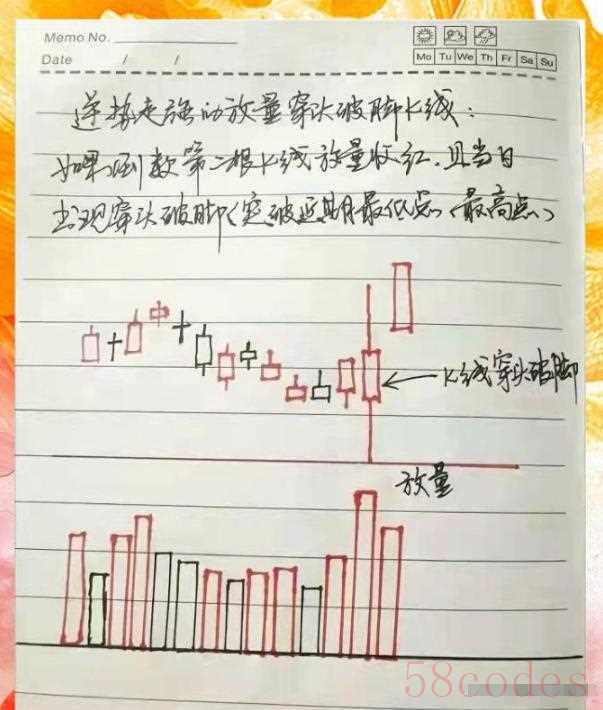 Memo No.
Date / /
Mo Tu We Th Fr Sa Su
逆势走强的放量穿头破脚K线：
如果倒数第二根K线放量收红，且当日
出现穿头破脚（突破近期最低点、最高点）
K线穿头破脚
放量
58codes